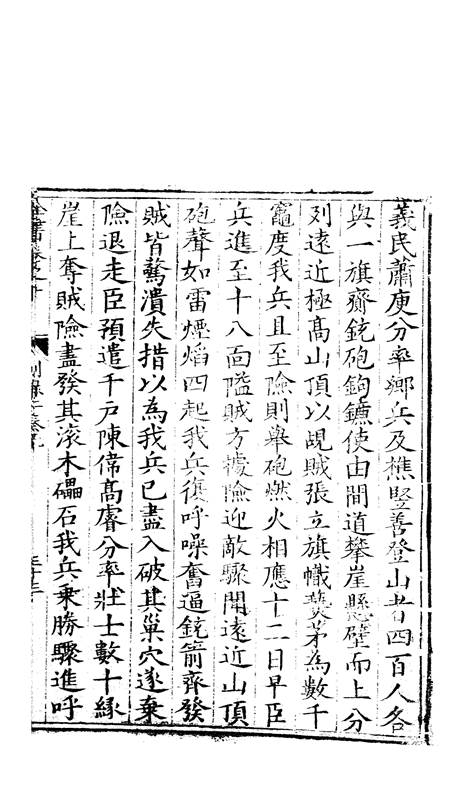 義民蕭庾分率鄉兵及樵豎善登山者四百人各
與一旗齎銃砲鉤鐮使由間道攀崖懸壁而上分
列遠近極高山頂以覘賊張立旗幟爇茅為數千
竈度我兵且至險則舉砲燃火相應十二日早臣
兵進至十八面隘賊方據險迎敵驟聞遠近山頂
砲聲如雷煙焰四起我兵復呼噪奮逼銃箭齊發
賊皆驚潰失措以為我兵已盡入破其巢穴遂棄
險退走臣預遣千戶陳偉高睿分率壯士數十緣
崖上奪賊險盡發其滾木礌石我兵乘勝驟進呼